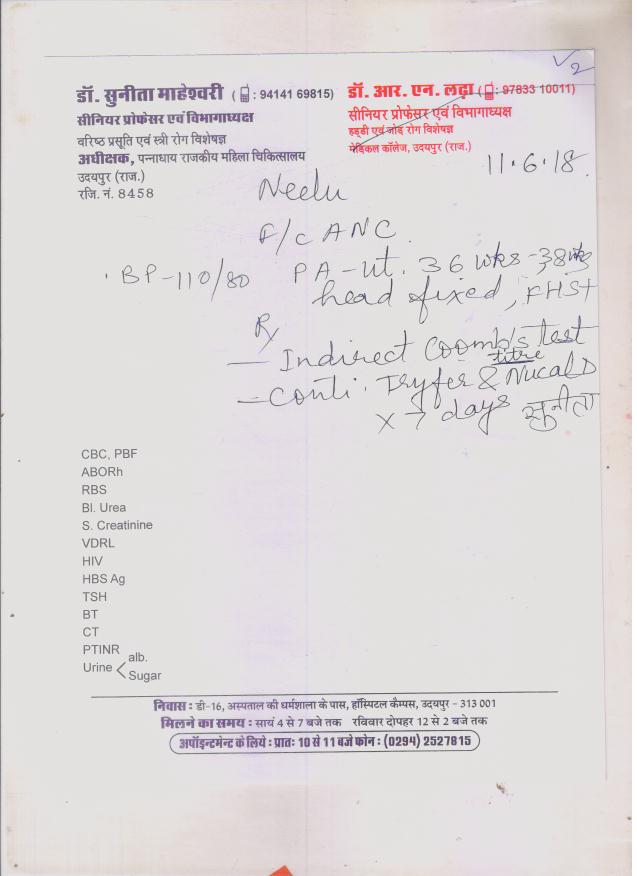 √2
डॉ. सुनीता माहेश्वरी ( : 94141 69815)
सीनियर प्रोफेसर एवं विभागाध्यक्ष
वरिष्ठ प्रसूति एवं स्त्री रोग विशेषज्ञ
अधीक्षक, पन्नाधाय राजकीय महिला चिकित्सालय
उदयपुर (राज.)
रजि. नं. 8458
डॉ. आर. एन. लढ़ा ( : 97833 10011)
सीनियर प्रोफेसर एवं विभागाध्यक्ष
हड्डी एवं जोड़ रोग विशेषज्ञ
मेडिकल कॉलेज, उदयपुर (राज.)
11.6.18
Neelu
F/c ANC
BP-110/80 PA-ut. 36 wks-38wks
head fixed, FHS+
Rx
— Indirect Coomb's test
titre
— Conti. Tryfer & Nucal D
x 7 days सुनीता
CBC, PBF
ABORh
RBS
Bl. Urea
S. Creatinine
VDRL
HIV
HBS Ag
TSH
BT
CT
PTINR
Urine < alb.
Sugar
निवास : डी-16, अस्पताल की धर्मशाला के पास, हॉस्पिटल कैम्पस, उदयपुर - 313 001
मिलने का समय : सायं 4 से 7 बजे तक रविवार दोपहर 12 से 2 बजे तक
अपॉइन्टमेन्ट के लिये : प्रातः 10 से 11 बजे फोन : (0294) 2527815